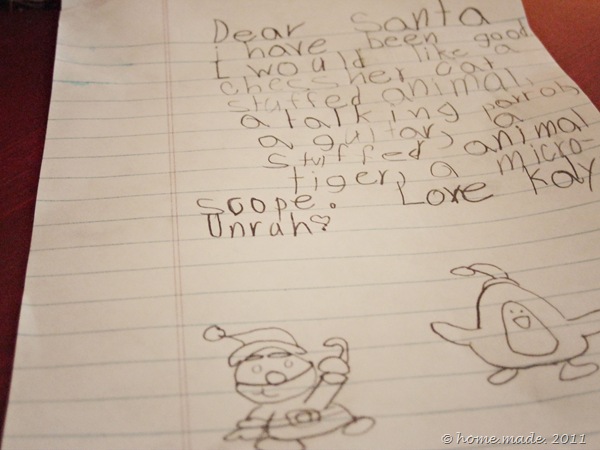 Dear Santa
i have been good
I would like a
chess her cat
stuffed animal,
a talking parrot,
a guitar, a
stuffed animal
tiger, a micro-
scope. Love Kaly
Unrah♡
© home.made. 2011